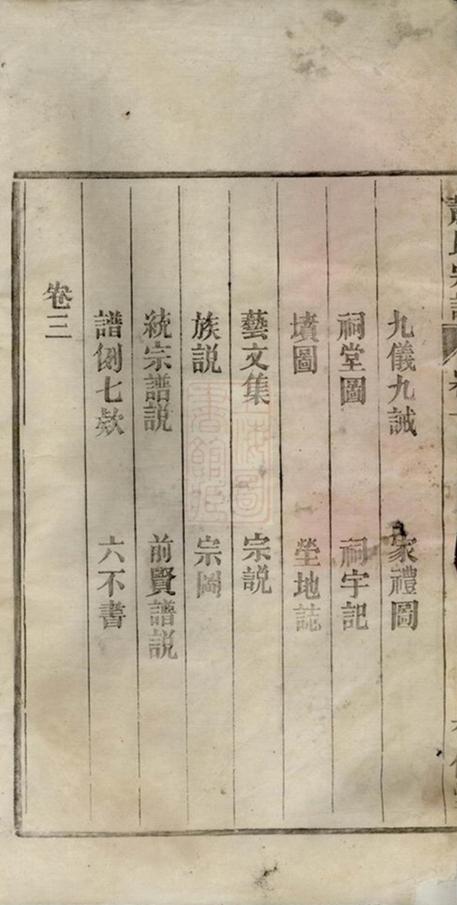 九儀九誡 家禮圖
祠堂圖 祠宇記
墳圖 塋地誌
藝文集 宗説
族説 宗圖
統宗譜説 前賢譜説
譜例七欵 六不書
卷三